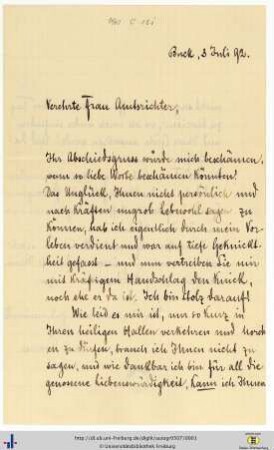 Buck, 3 Juli 92.
Verehrte Frau Amtsrichter,
Ihr Abschiedsgruss würde mich beschämen,
wenn so liebe Worte beschämen könnten!
Das Unglück, Ihnen nicht persönlich und
nach Kräften ungrob Lebewohl sagen zu
können, hab ich eigentlich durch mein Vor-
leben verdient und war auf tiefe Geknickt-
heit gefasst – und nun vertreiben Sie mir
mit kräftigem Handschlag den Knick,
noch ehe er da ist. Ich bin stolz darauf!
Wie leid es mir ist, nur so kurz in
Ihren heiligen Hallen verkehren und horch
en zu dürfen, brauch ich Ihnen nicht zu
sagen, und wie dankbar ich bin für all die
genossene Liebenswürdigkeit, kann ich Ihnen
http://dl.ub.uni-freiburg.de/diglit/autogr0507/0001
© Universitätsbibliothek Freiburg